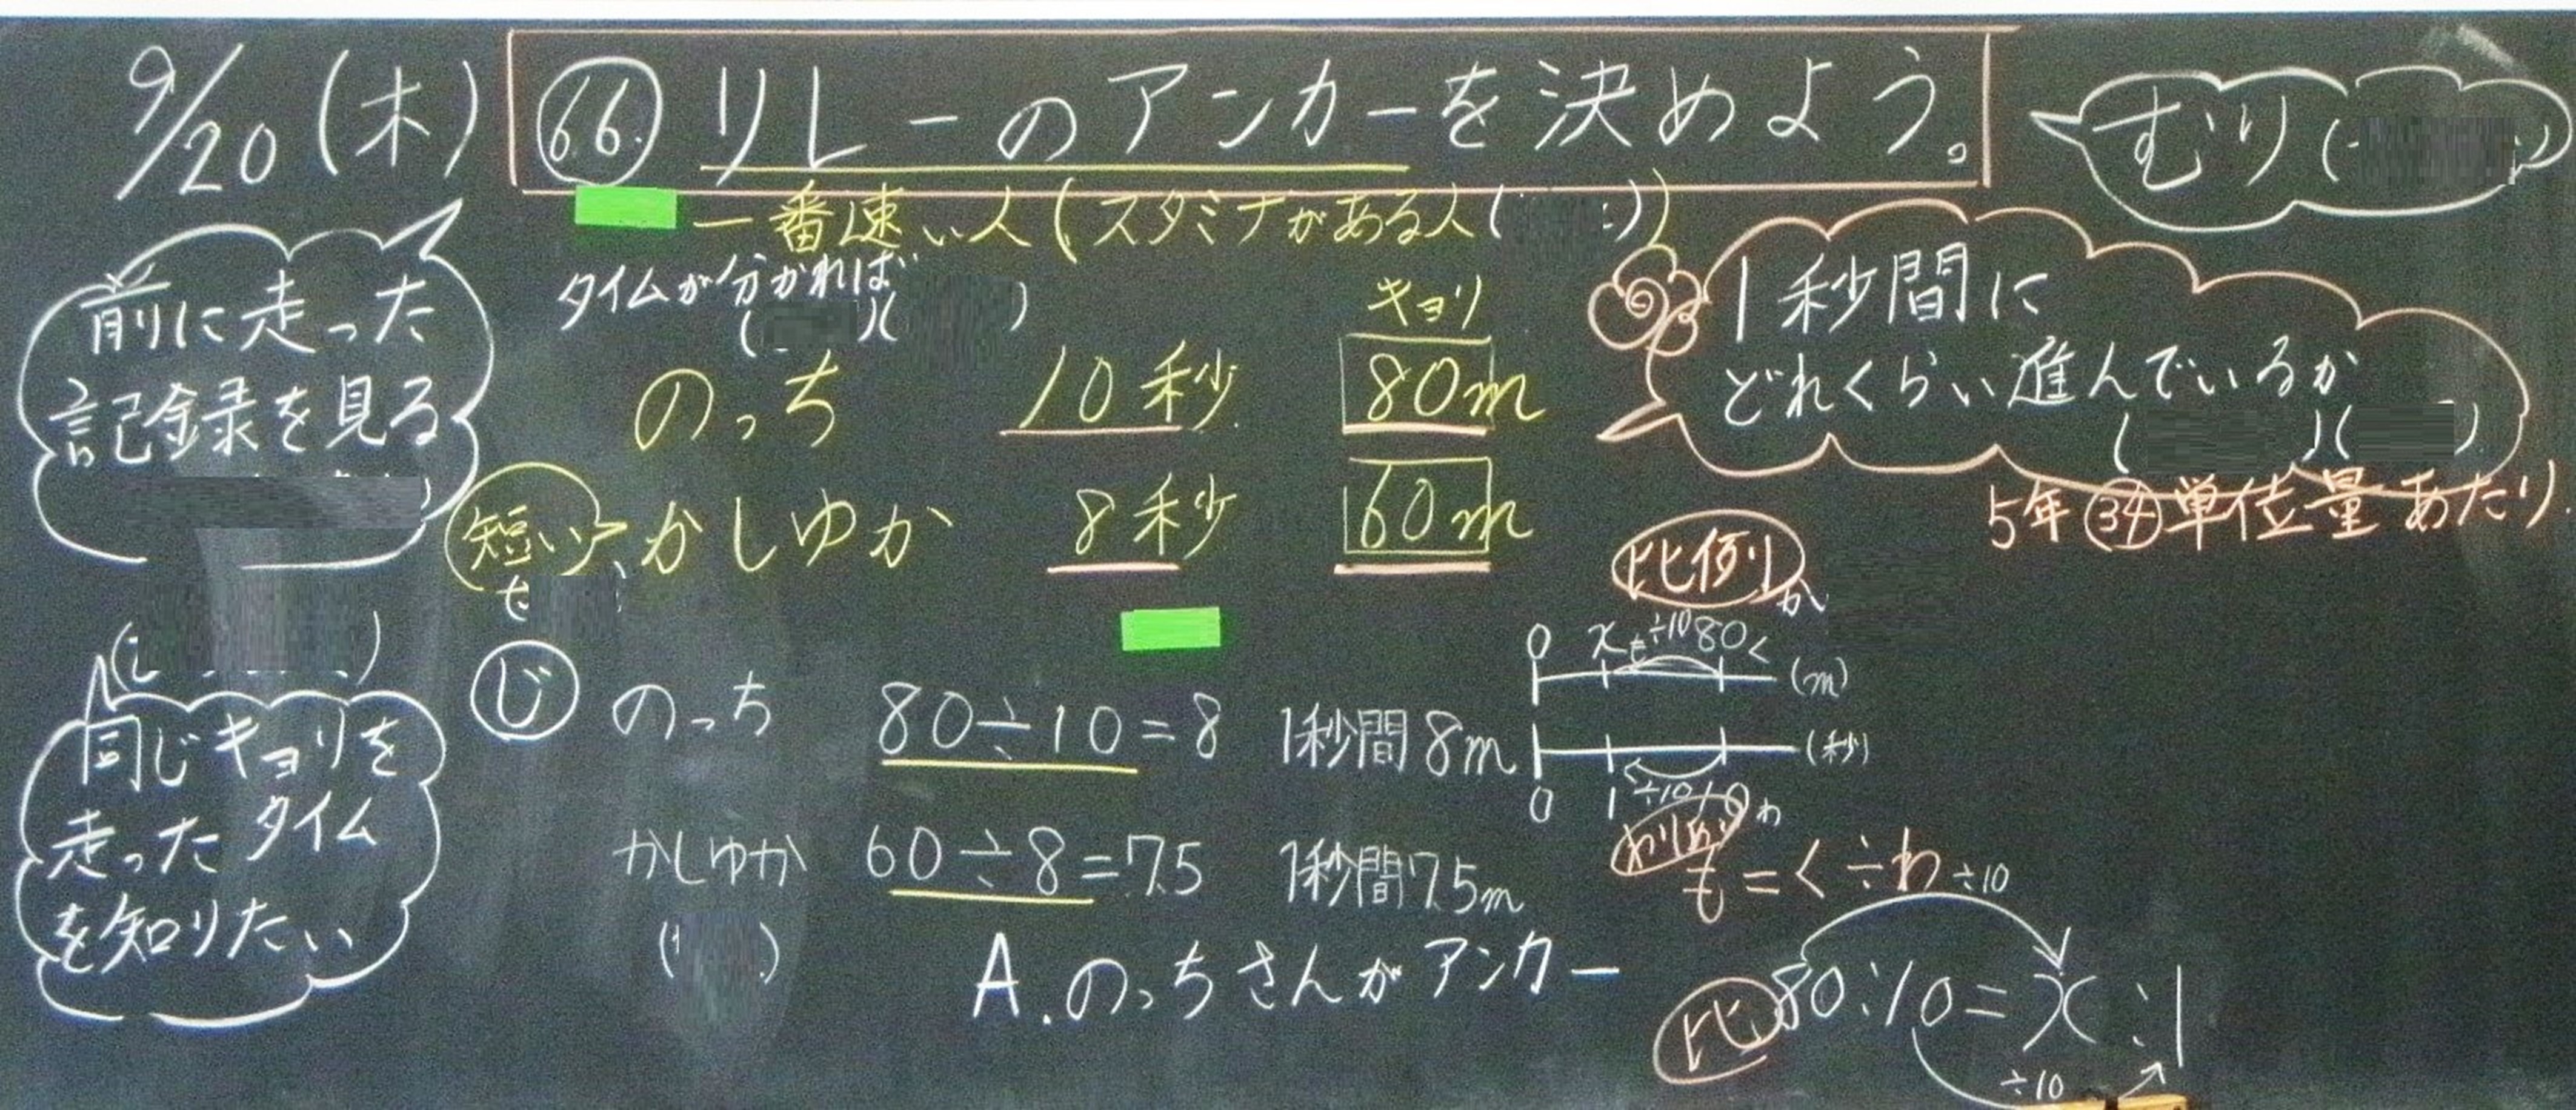 9/20(木)
66 リレーのアンカーを決めよう。
むり
一番速い人(スタミナがある人( ))
タイムが分かれば
前に走った
記録を見る
キョリ
のっち 10秒 80m
短い かしゆか 8秒 60m
1秒間に
どれくらい進んでいるか
5年 34 単位量あたり
比例
か
0 x も ÷10 80 く (m)
(秒)
0 1 ÷10 10 わ
わりあい
も=く÷わ
じ のっち 80÷10=8 1秒間8m
かしゆか 60÷8=7.5 1秒間7.5m
A.のっちさんがアンカー
同じキョリを
走ったタイム
を知りたい
÷10
比 80:10=x:1
÷10